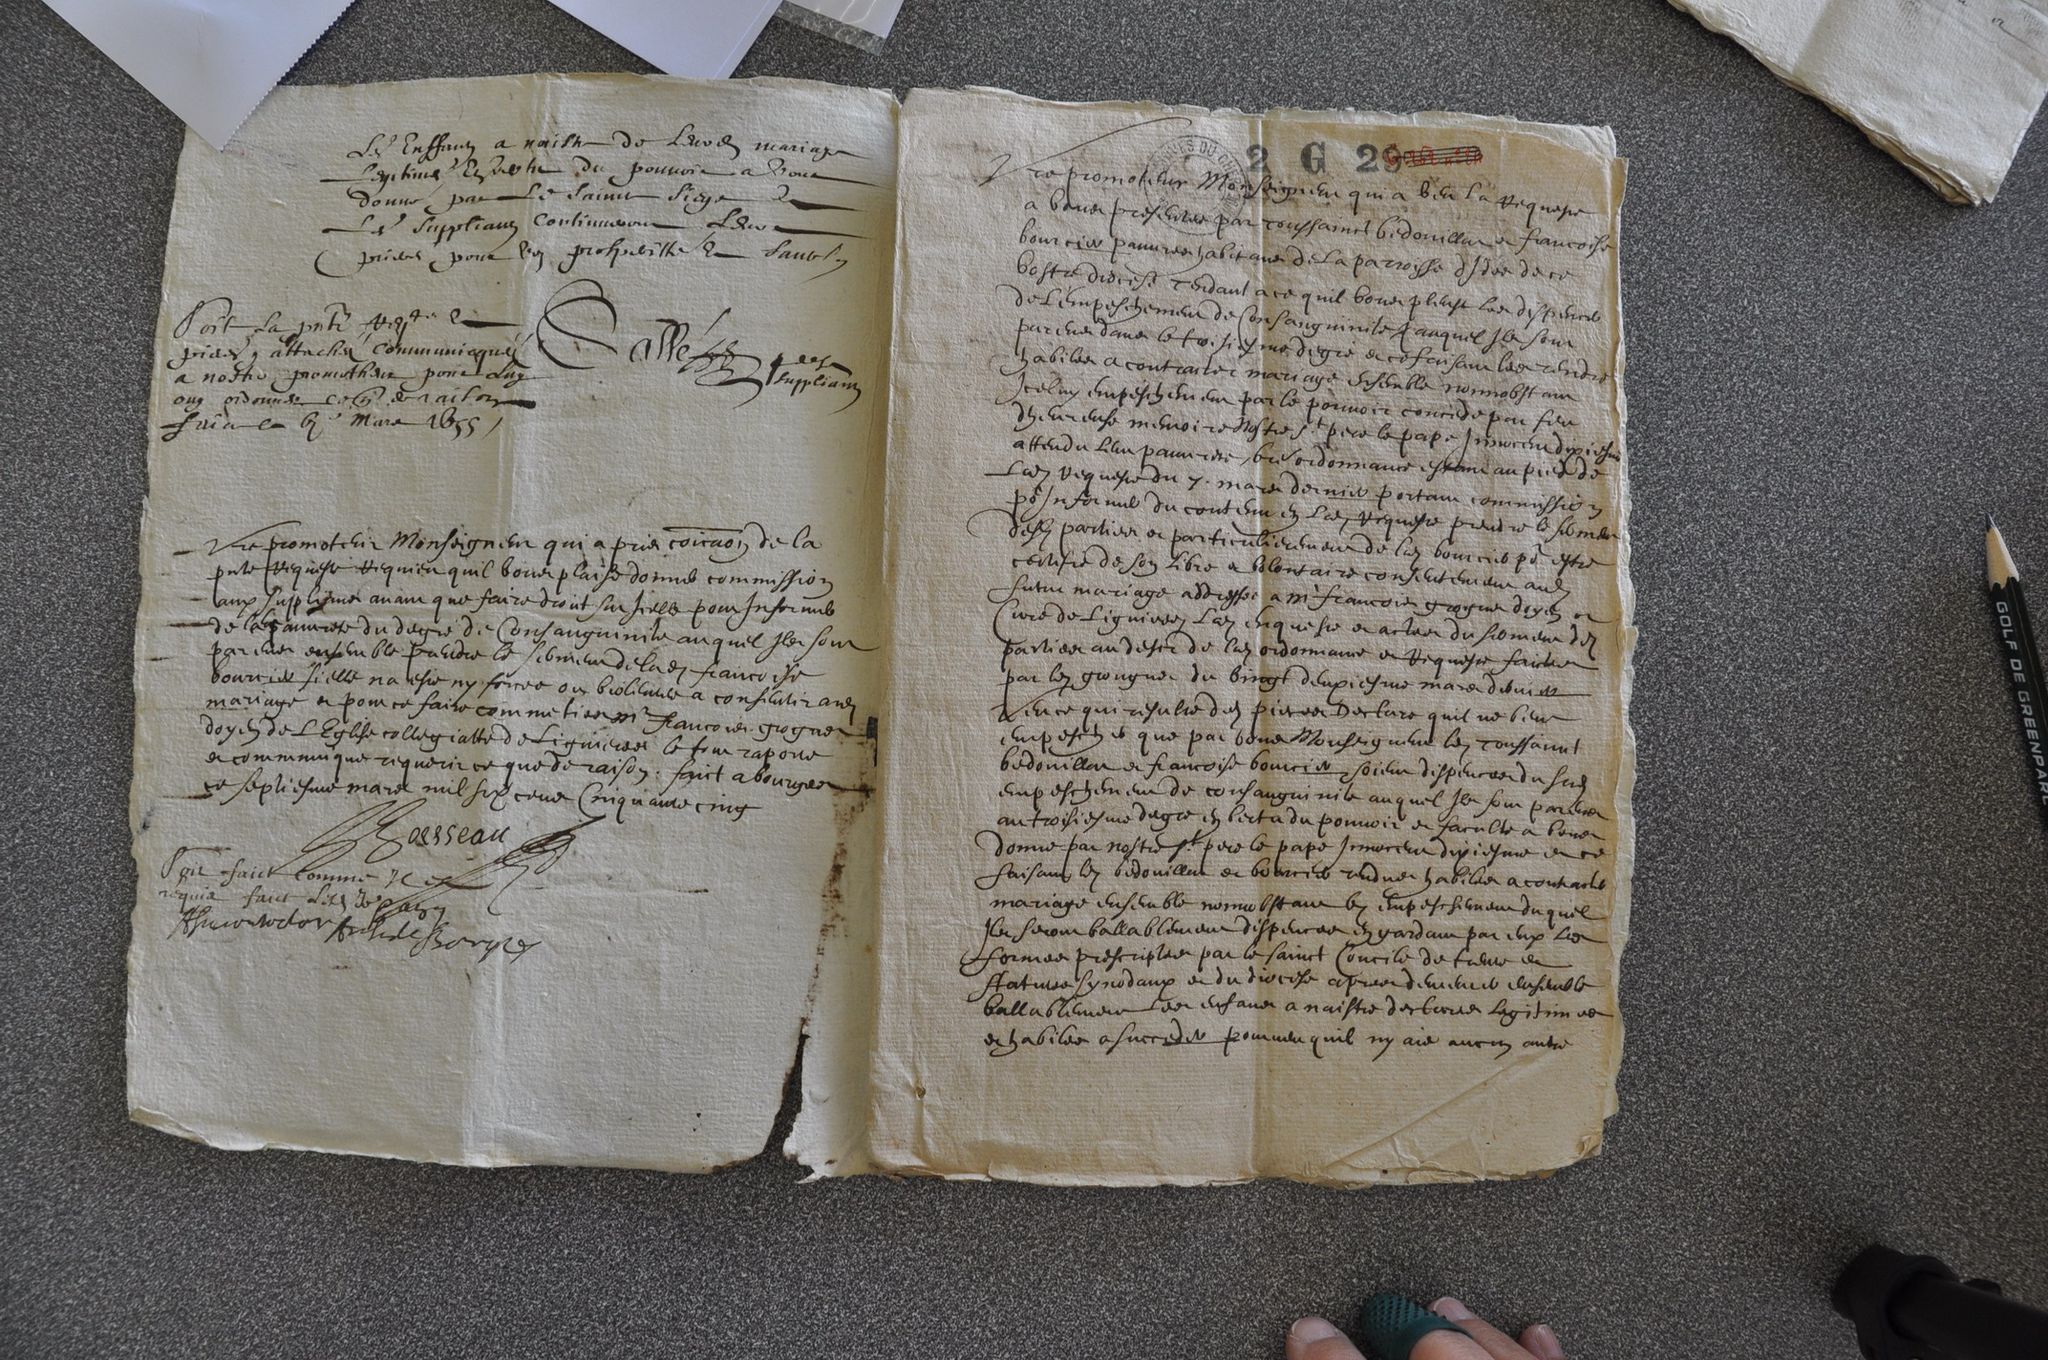 Les Enffans a naistre de Leurd mariage
Legitimes En vertu du pouvoir a vous
donne par Le Saint Siege Et
Les Supplians Continueront Leurs
prieres pour v̄re prosperitte Et sante
Soit la pnte Reqte Et
pieces y attachés communicqués
a nostre promotheur pour luy
ouy ordonner ce q de raison
faict ce vije Mars 1655
supplians
Vre promoteur Monseigneur qui a pris coīcaōn de la
pnte Requeste Requiert quil vous plaise donner commission
aux supplians avant que faire droit sur Icelle pour Informer
de la pauvrete du degre de Consanguinite auquel Ils sont
parens ensemble prendre le serment de lad francoise
bourcier si elle na este ny forcee ou viollentee a consentir aud
mariage et pour ce faire commetre mr francois grogner
doyen de L'Eglise collegiatte de Lignieres le tout raporte
et communique requerir ce que de raison. faict a bourges
ce septiesme mars mil six cens Cinquante cinq
Soit faict comme Il est
requis faict Lesd Jour
2 G 29
Vre promoteur Monseigneur qui a veu la Requeste
a vous presentee par toussainct bedouillat et francoise
bourcier pauvres habitans de la parroisse d'Ids de ce
vostre diocese tendant a ce quil vous pleust les dispencer
de Lempeschement de Consanguinite auquel Ils sont
parens dans le troisiesme degre et ce faisant les rendre
habiles a contracter mariage ensemble nonnobstant
Iceluy empeschement par le pouvoir concede par feu
dheureuse memoire Nostre St pere le pape Innocent dixiesme
attendu leur pauvrete, vre ordonnance estant au pied de
Lad Requeste du 7. mars dernier portant commission
pr Informer du contenu en Lad Requeste prendre le serment
desd parties et particulierement de lad bourcier pr estre
certifié de son libre et volontaire consentement aud
futur mariage addressee a mr francois grogner doyen et
Cure de Lignieres Lad enqueste et actes du serment desd
parties au desir de lad ordonnance et Requeste faictes
par led grogner du vingt deuxiesme mars dernier
Veu ce qui resulte desd pieces Declare quil ne veut
empescher que par vous Monseigneur led toussainct
bedouillat et francoise bourcier soient dispences du susd
empeschement de consanguinite auquel Ils sont parens
au troisiesme degre en vertu du pouvoir et faculte a vous
donne par nostre St pere le pape Innocent dixiesme et ce
faisant led bedouillat et bourcier rendus habiles a contracter
mariage ensemble nonnobstant led empeschement duquel
Ils seront vallablement dispences en gardant par eux Les
formes prescriptes par le sainct Concile de trente et
statues synodaux et du diocese apres demeurer ensemble
vallablement Les enfans a naistre declares legitimes
et habiles a succeder pourveu quil ny aie aucun autre
GOLF DE GREENPAR